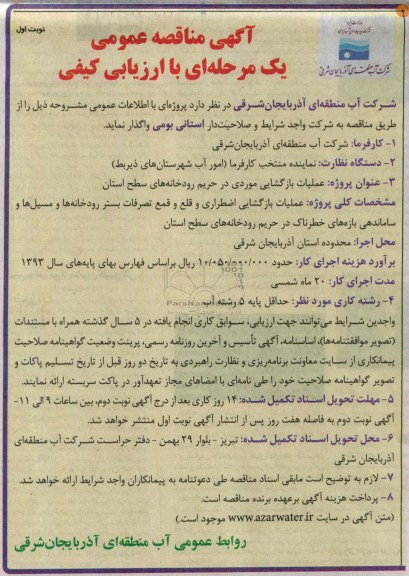 نوبت اول
آگهی مناقصه عمومی
یک مرحله‌ای با ارزیابی کیفی
شرکت آب منطقه‌ای آذربایجان شرقی
شرکت آب منطقه‌ای آذربایجان‌شرقی در نظر دارد پروژه‌ای با اطلاعات عمومی مشروحه ذیل را از
طریق مناقصه به شرکت واجد شرایط و صلاحیت‌دار استانی بومی واگذار نماید.
۱- کارفرما: شرکت آب منطقه‌ای آذربایجان‌شرقی
۲- دستگاه نظارت: نماینده منتخب کارفرما (امور آب شهرستان‌های ذیربط)
۳- عنوان پروژه: عملیات بازگشایی موردی در حریم رودخانه‌های سطح استان
مشخصات کلی پروژه: عملیات بازگشایی اضطراری و قلع و قمع تصرفات بستر رودخانه‌ها و مسیل‌ها و
ساماندهی بازه‌های خطرناک در حریم رودخانه‌های سطح استان
محل اجرا: محدوده استان آذربایجان شرقی
برآورد هزینه اجرای کار: حدود ۱۰/۰۵۰/۰۰۰/۰۰۰ ریال براساس فهارس بهای پایه‌های سال ۱۳۹۳
مدت اجرای کار: ۲۰ ماه شمسی
۴- رشته کاری مورد نظر: حداقل پایه ۵ رشته آب
واجدین شرایط می‌توانند جهت ارزیابی، سوابق کاری انجام یافته در ۵ سال گذشته همراه با مستندات
(تصویر موافقتنامه‌ها)، اساسنامه، آگهی تأسیس و آخرین روزنامه رسمی، پرینت وضعیت گواهینامه صلاحیت
پیمانکاری از سایت معاونت برنامه‌ریزی و نظارت راهبردی به تاریخ دو روز قبل از تاریخ تسلیم پاکات و
تصویر گواهینامه صلاحیت خود را طی نامه‌ای با امضاهای مجاز تعهدآور در پاکت سربسته ارائه نمایند.
۵- مهلت تحویل اسناد تکمیل شده: ۱۴ روز کاری بعد از درج آگهی نوبت دوم، بین ساعات ۹ الی ۱۱-
آگهی نوبت دوم به فاصله هفت روز پس از انتشار آگهی نوبت اول منتشر خواهد شد.
۶- محل تحویل اسناد تکمیل شده: تبریز - بلوار ۲۹ بهمن - دفتر حراست شرکت آب منطقه‌ای
آذربایجان شرقی
۷- لازم به توضیح است مابقی اسناد مناقصه طی دعوتنامه به پیمانکاران واجد شرایط ارائه خواهد شد.
۸- پرداخت هزینه آگهی برعهده برنده مناقصه است.
(متن آگهی در سایت www.azarwater.ir موجود است.)
روابط عمومی آب منطقه‌ای آذربایجان‌شرقی